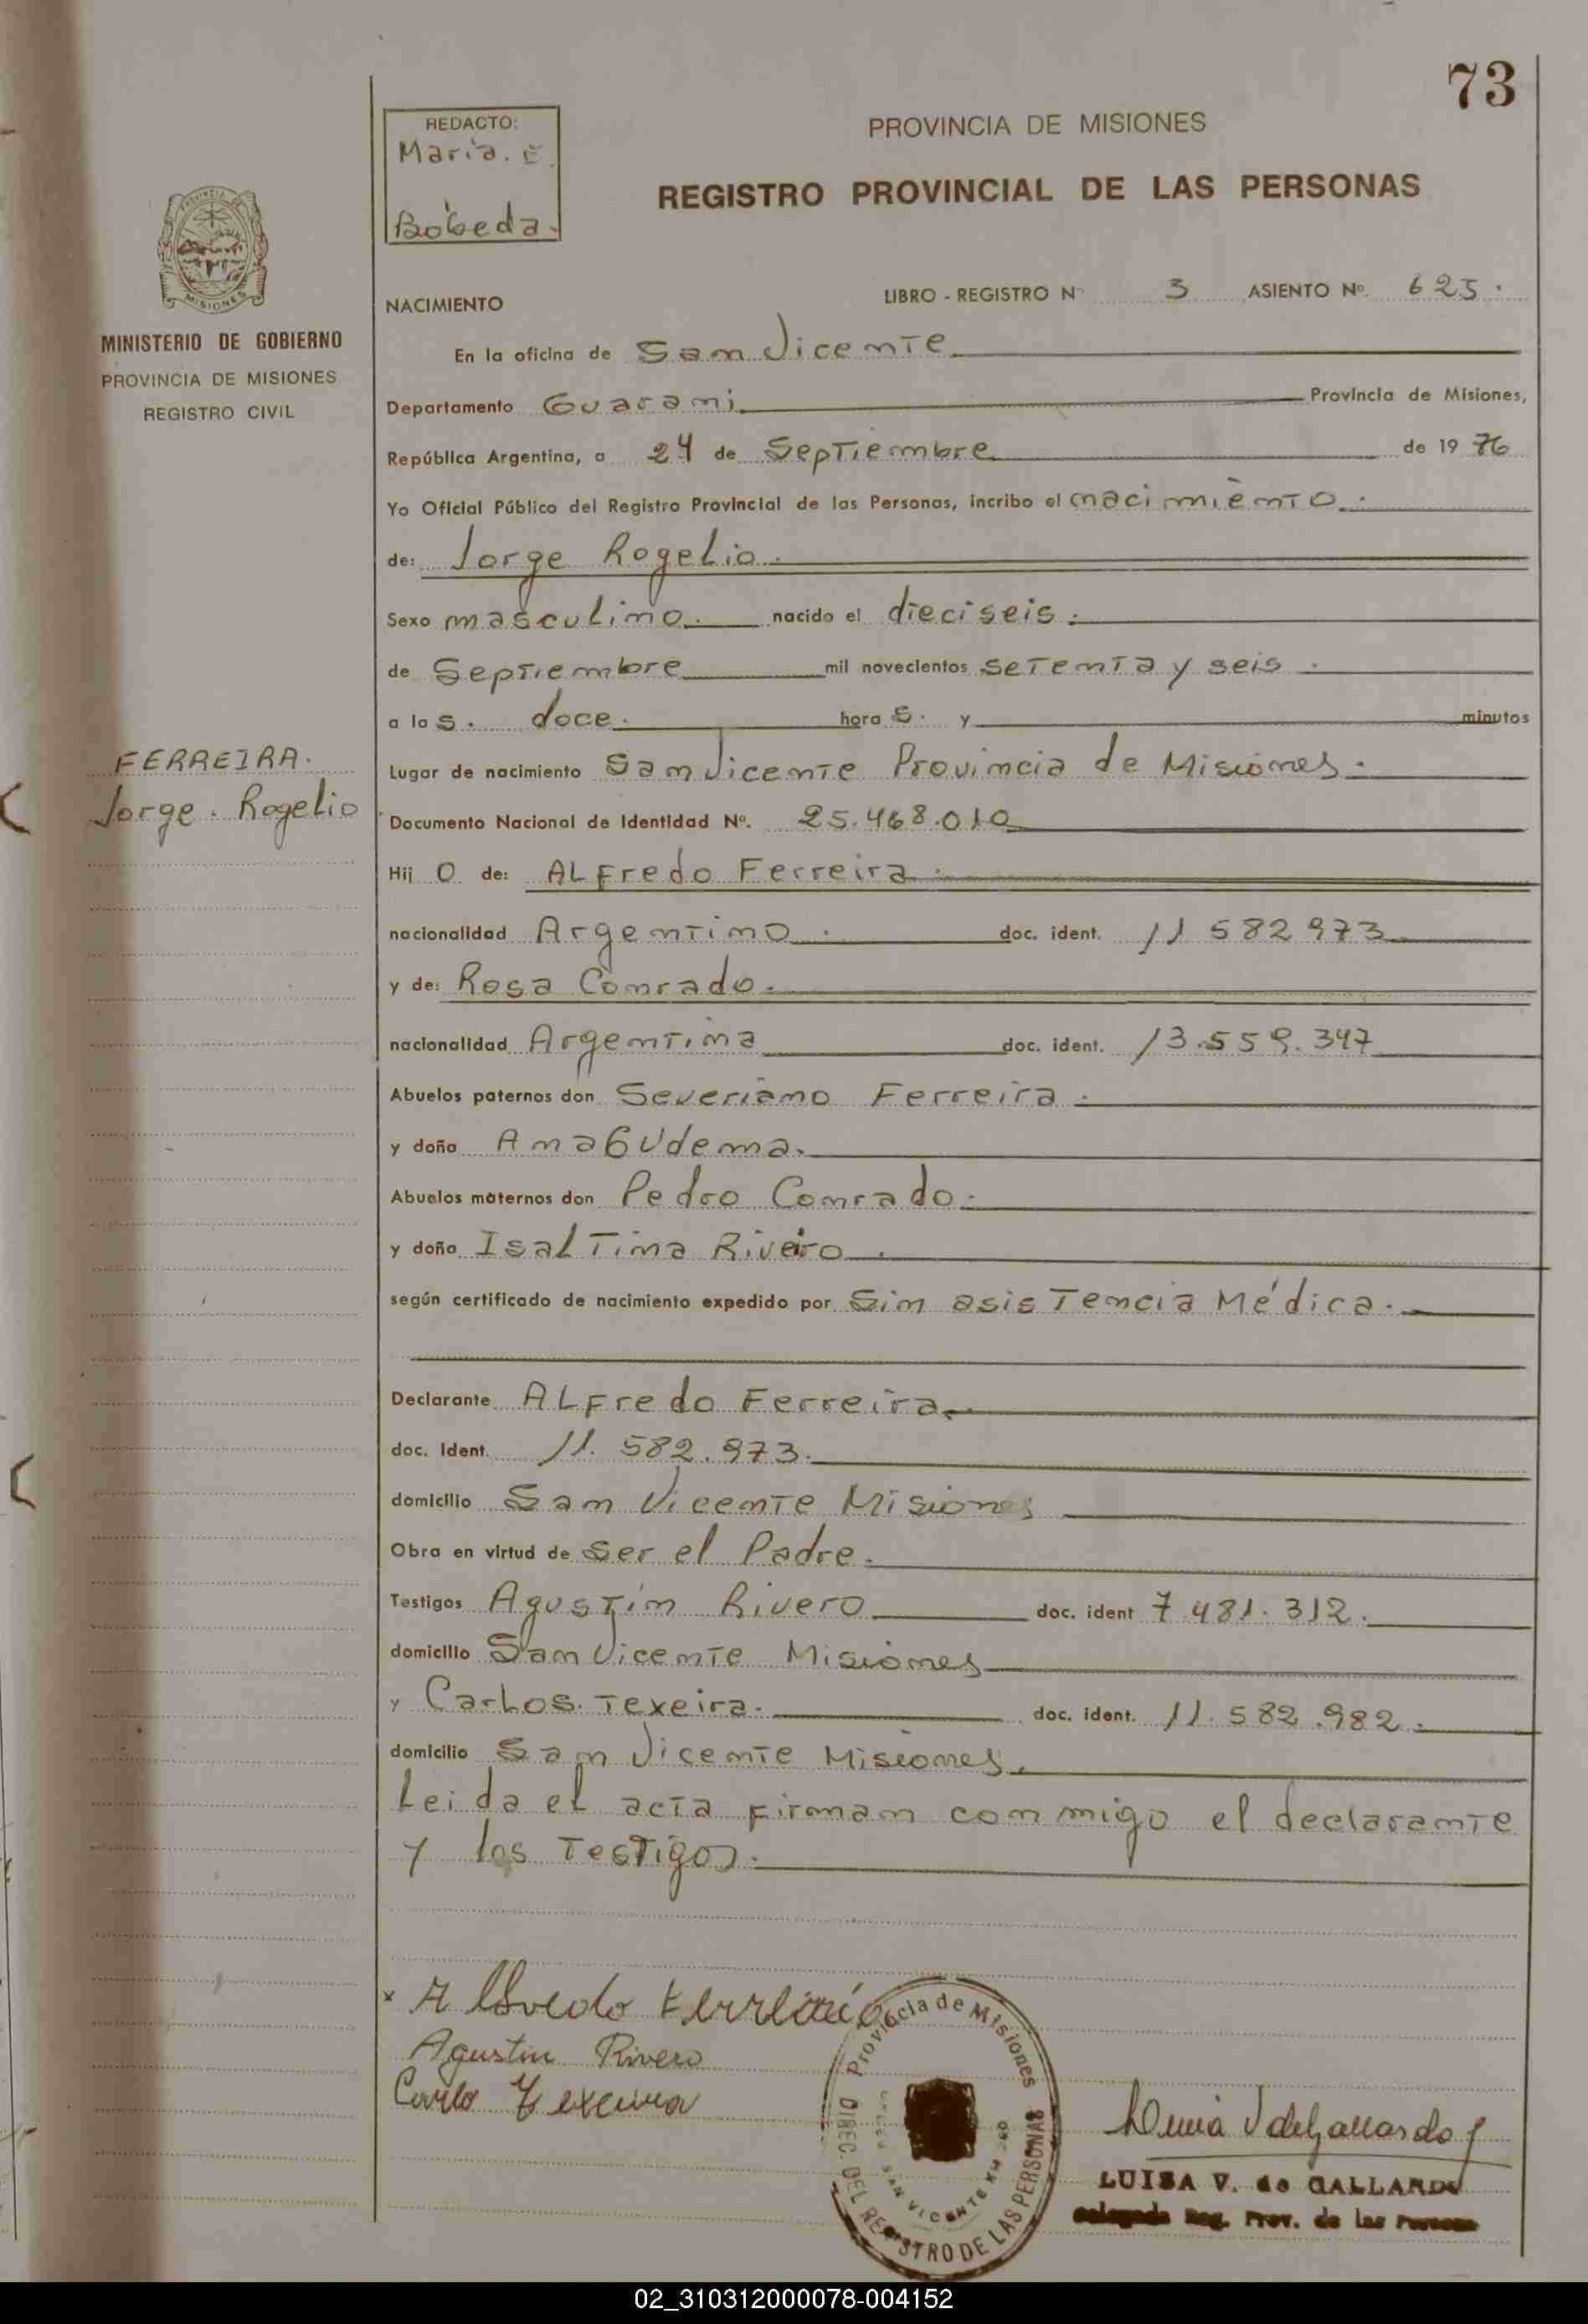 73
REDACTO:
Maria. E.
Bóbeda.
PROVINCIA DE MISIONES
REGISTRO PROVINCIAL DE LAS PERSONAS
MISIONES
MINISTERIO DE GOBIERNO
PROVINCIA DE MISIONES
REGISTRO CIVIL
NACIMIENTO
LIBRO - REGISTRO Nº 3 ASIENTO Nº. 625.
En la oficina de San Vicente
Departamento Guarani Provincia de Misiones,
República Argentina, a 24 de Septiembre de 1976
Yo Oficial Público del Registro Provincial de las Personas, incribo el nacimiento.
de: Jorge Rogelio.
Sexo masculino. nacido el dieciseis.
de Septiembre mil novecientos setenta y seis.
a las. doce. horas. y minutos
FERREIRA.
Jorge. Rogelio
Lugar de nacimiento San Vicente Provincia de Misiones.
Documento Nacional de Identidad Nº. 25.468.010
Hijo de: ALfredo Ferreira.
nacionalidad Argentino. doc. ident. 11 582 973
y de: Rosa Conrado.
nacionalidad Argentina doc. ident. 13.559.347
Abuelos paternos don Severiano Ferreira.
y doña Ana Gudema.
Abuelos maternos don Pedro Conrado.
y doña Isaltina Riveiro.
según certificado de nacimiento expedido por Sin asistencia Médica.
Declarante ALfredo Ferreira.
doc. Ident. 11.582.973.
domicilio San Vicente Misiones
Obra en virtud de Ser el Padre.
Testigos Agustin Rivero doc. ident 7 481.312.
domicilio San Vicente Misiones
y Carlos. Texeira. doc. ident. 11.582.982.
domicilio San Vicente Misiones.
Leida el acta firman conmigo el declarante
y los Testigos.
x Alfredo Ferreira
Agustin Rivero
Carlo Texeira
Provincia de Misiones
DIREC. DEL REGISTRO DE LAS PERSONAS
SAN VICENTE KM
LUISA V. de GALLARDO
Delegada Reg. Prov. de las Personas
02_310312000078-004152